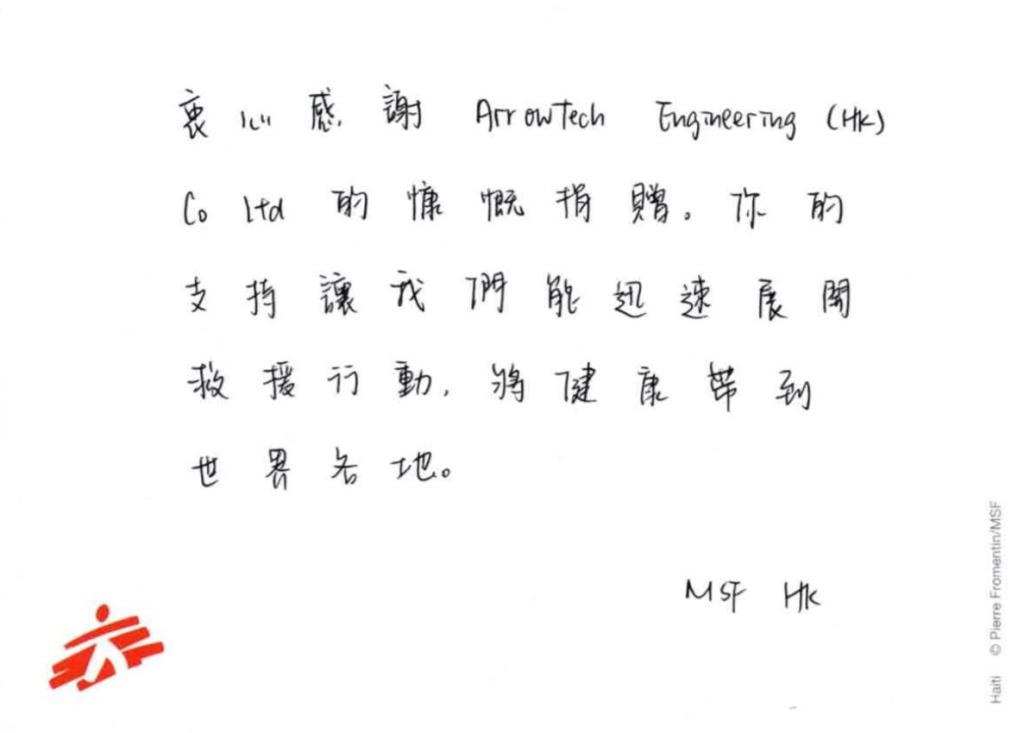 衷心感謝 ArrowTech Engineering (HK)
Co Ltd 的慷慨捐贈。你的
支持讓我們能迅速展開
救援行動，將健康帶到
世界各地。
MSF HK
Haiti © Pierre Fromentin/MSF